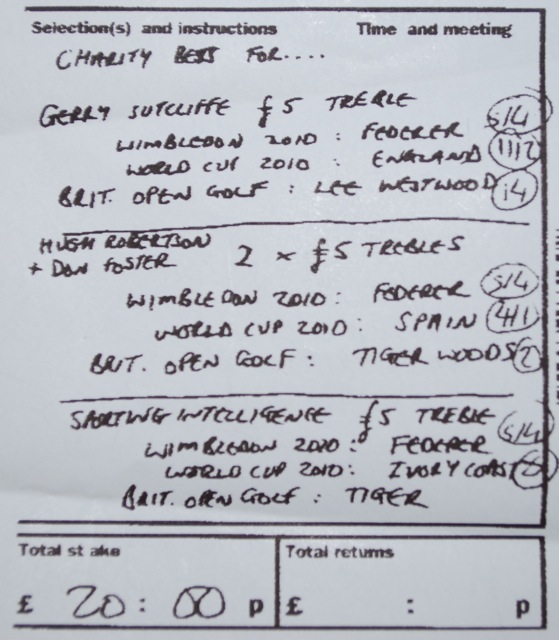 Selection(s) and instructions Time and meeting
CHARITY BETS FOR....
GERRY SUTCLIFFE £5 TREBLE
WIMBLEDON 2010: FEDERER 5/4
WORLD CUP 2010: ENGLAND 11/2
BRIT. OPEN GOLF: LEE WESTWOOD 14
HUGH ROBERTSON
+ DON FOSTER 2 x £5 TREBLES
WIMBLEDON 2010: FEDERER 5/4
WORLD CUP 2010: SPAIN 4/1
BRIT. OPEN GOLF: TIGER WOODS
SPORTING INTELLIGENCE £5 TREBLE
WIMBLEDON 2010: FEDERER 5/4
WORLD CUP 2010: IVORY COAST
BRIT. OPEN GOLF: TIGER
Total stake Total returns
£ 20:00 p £ : p